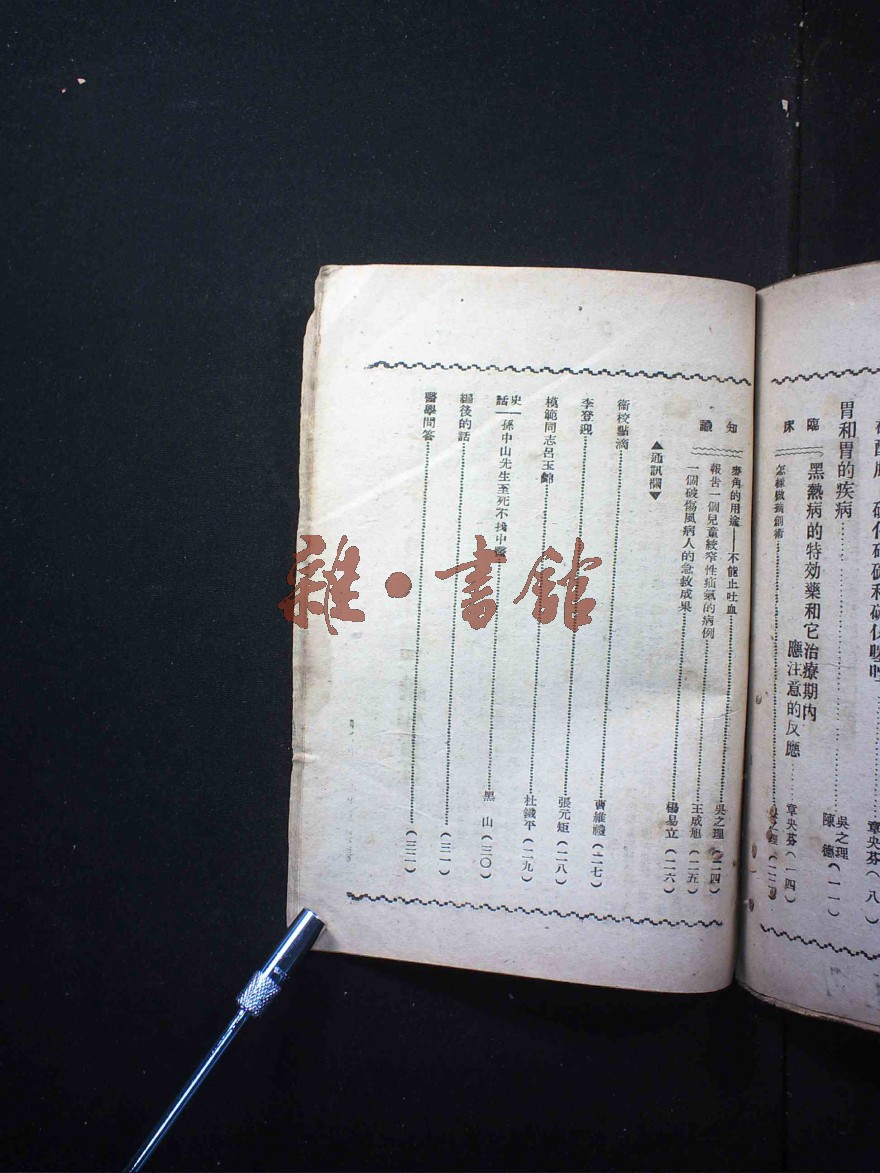 胃和胃的疾病……吳之理 陳德(一一)
臨床
黑熱病的特効藥和它治療期內
應注意的反應……章央芬(一四)
知識
麥角的用途——不能止吐血……吳之理(二四)
報告一個兒童絞窄性疝氣的病例……王成旭(二五)
一個破傷風病人的急救成果……楊易立(二六)
▲通訊欄▼
衞校點滴……曹維禮(二七)
李登迎……張元矩(二八)
模範同志呂玉錦……杜鐵平(二九)
史話——孫中山先生至死不找中醫……黑山(三〇)
編後的話……(三一)
醫學問答……(三二)
雜·書館